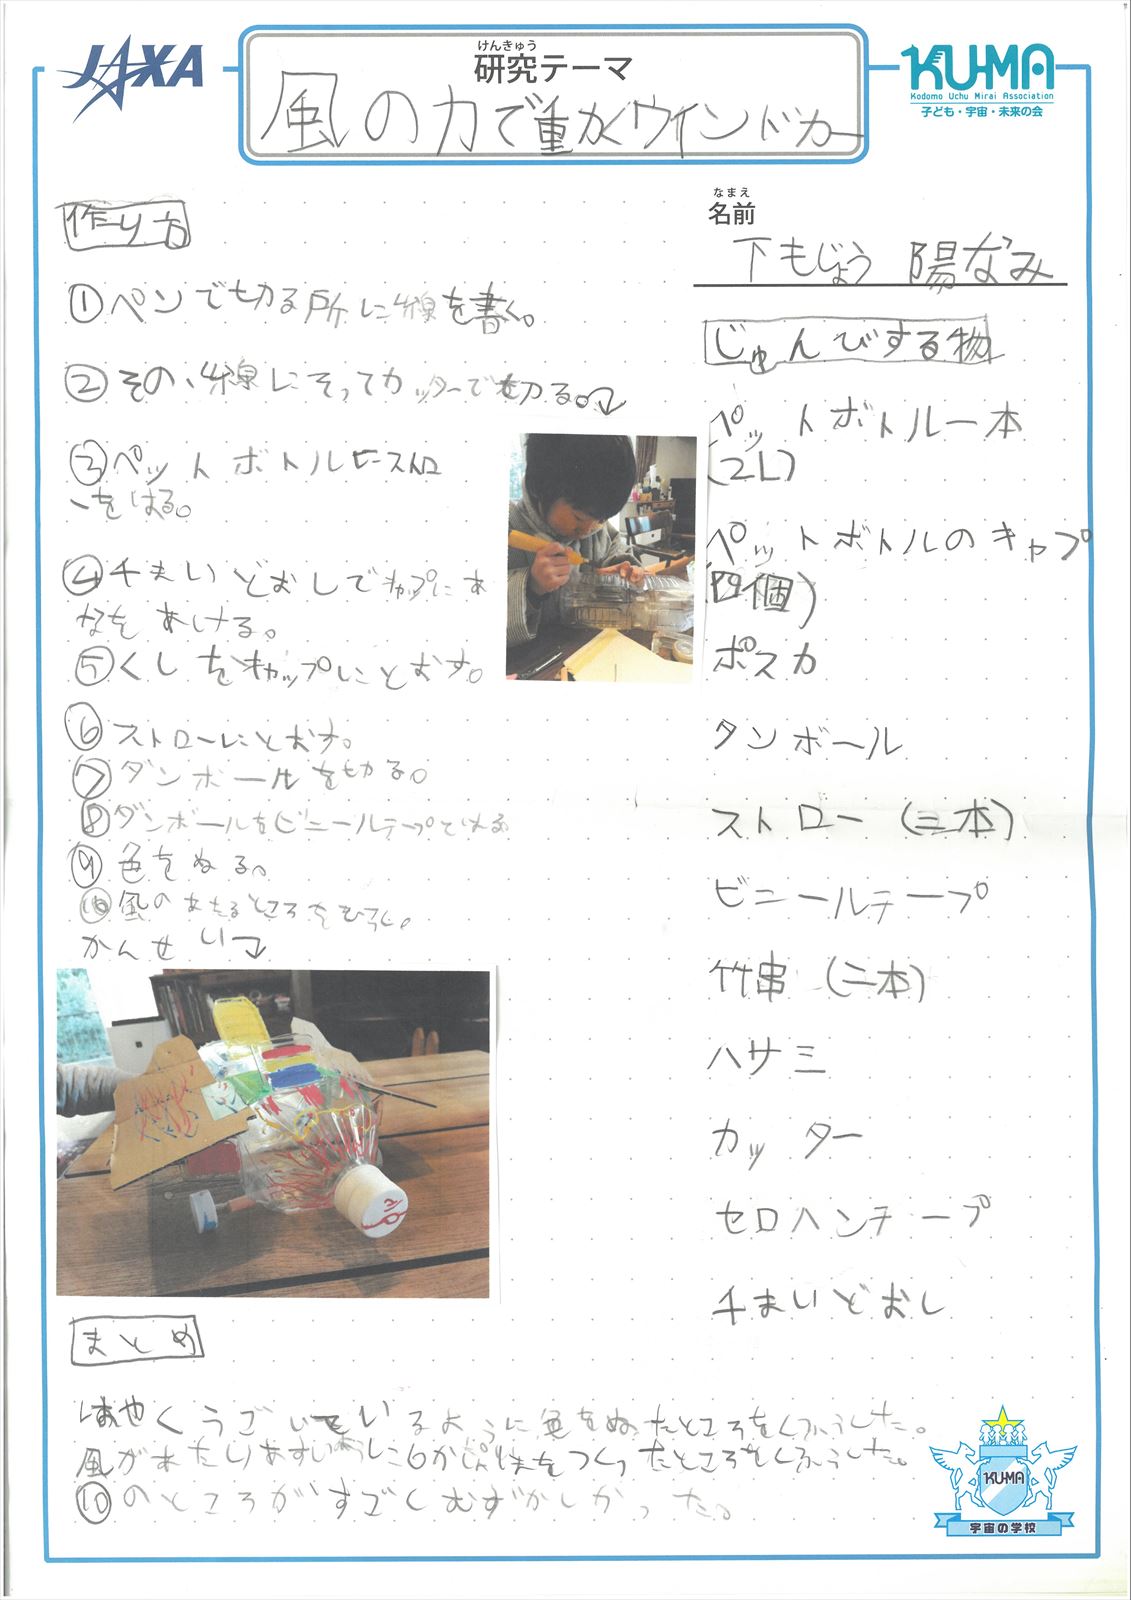 JAXA
けんきゅう
研究テーマ
風の力で動くウインドカー
KU-MA
Kodomo Uchu Mirai Association
子ども・宇宙・未来の会
なまえ
名前
下もじょう 陽なみ
作り方
①ペンで切る所に線を書く。
②その、線にそってカッターで切る。
③ペットボトルにストロ
ーをはる。
④千まいどおしでキャップにあ
なをあける。
⑤くしをキャップにとおす。
⑥ストローにとおす。
⑦ダンボールを切る。
⑧ダンボールをビニールテープでとめる
⑨色をぬる。
⑩風のあたるところをひらく。
かんせい
じゅんびする物
ペットボトル一本
(2L)
ペットボトルのキャプ
(四個)
ポスカ
タンボール
ストロー(二本)
ビニールテープ
竹串(二本)
ハサミ
カッター
セロハンテープ
千まいどおし
まとめ
はやくうごいているように色をぬったところをくふうした。
風があたりやすいように
をつくったところをくふうした。
⑩のところがすごくむずかしかった。
KU-MA
宇宙の学校